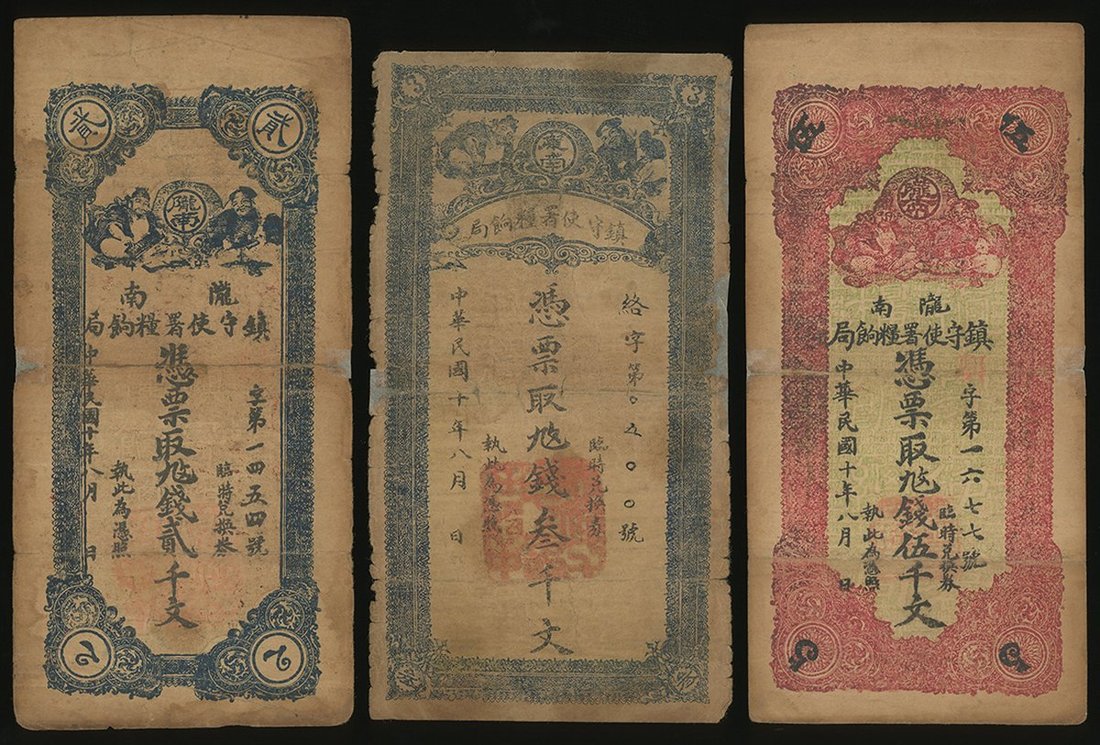 貳
隴南
隴南
鎮守使署糧餉局
字第一四五四號
臨時兌換券
憑票取錢貳千文
執此為憑照
中華民國十年八月 日
隴南
鎮守使署糧餉局
絡字第〇五〇〇號
臨時兌換券
憑票取錢叁千文
執此為憑照
中華民國十年八月 日
伍
隴南
隴南
鎮守使署糧餉局
字第一六七七號
臨時兌換券
憑票取錢伍千文
執此為憑照
中華民國十年八月 日